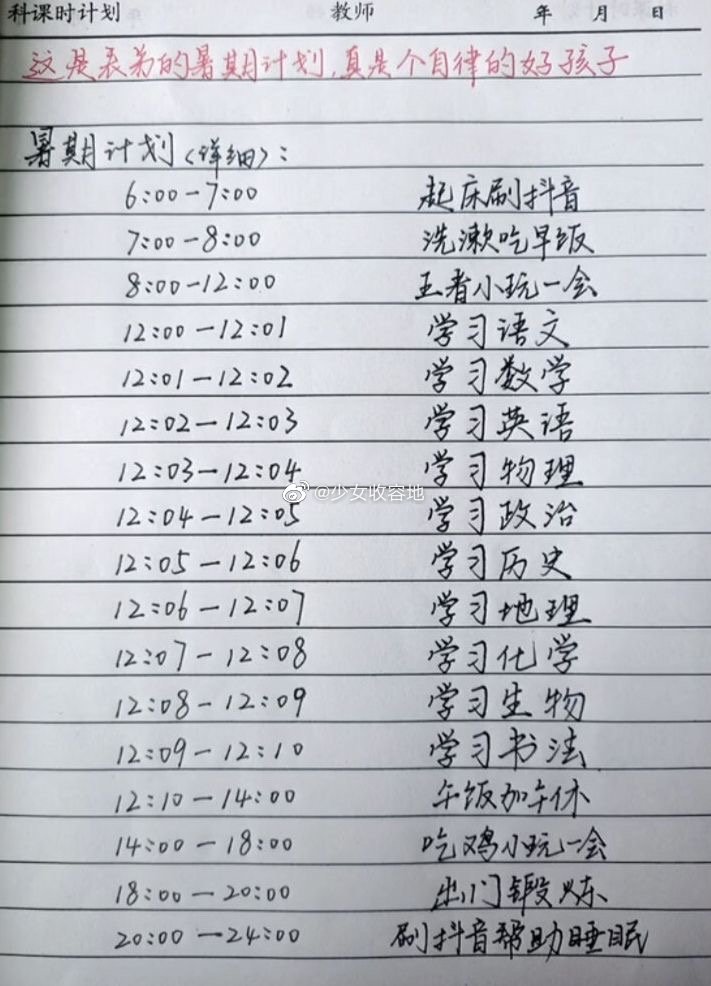 科课时计划 教师 年 月 日
这是表弟的暑期计划,真是个自律的好孩子
暑期计划(详细):
6:00-7:00 起床刷抖音
7:00-8:00 洗漱吃早饭
8:00-12:00 王者小玩一会
12:00-12:01 学习语文
12:01-12:02 学习数学
12:02-12:03 学习英语
12:03-12:04 学习物理
@少女收容地
12:04-12:05 学习政治
12:05-12:06 学习历史
12:06-12:07 学习地理
12:07-12:08 学习化学
12:08-12:09 学习生物
12:09-12:10 学习书法
12:10-14:00 午饭加午休
14:00-18:00 吃鸡小玩一会
18:00-20:00 出门锻炼
20:00-24:00 刷抖音帮助睡眠